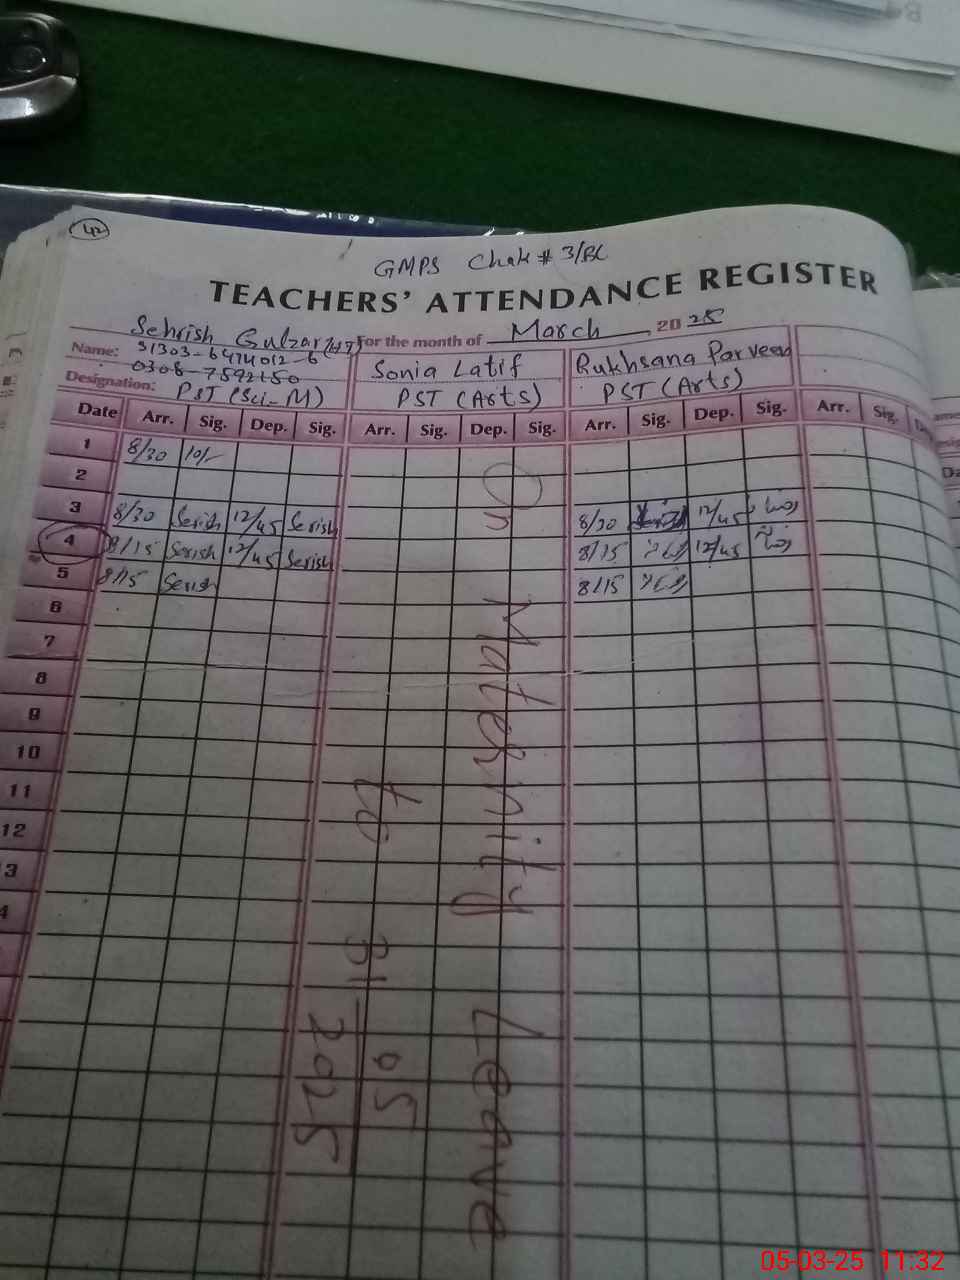 42
GMPS Chak # 3/BC
TEACHERS' ATTENDANCE REGISTER
For the month of March 2025
Name: Sehrish Gulzar (HT)
31303-6474012-6
0308-7592150
Designation: PST (Sci-M)
Sonia Latif
PST (Arts)
Rukhsana Parveen
PST (Arts)
Date Arr. Sig. Dep. Sig. Arr. Sig. Dep. Sig. Arr. Sig. Dep. Sig. Arr. Sig. Dep.
1 8/30
2
3 8/30 Serish 12/45 Serish 8/30 12/45
4 8/15 Serish 12/45 Serish 8/15 12/45
5 8/15 Serish 8/15
6
7
8
9
10
11
12
3
4
On Maternity Leave
to 31 05
2025
05-03-25 11:32